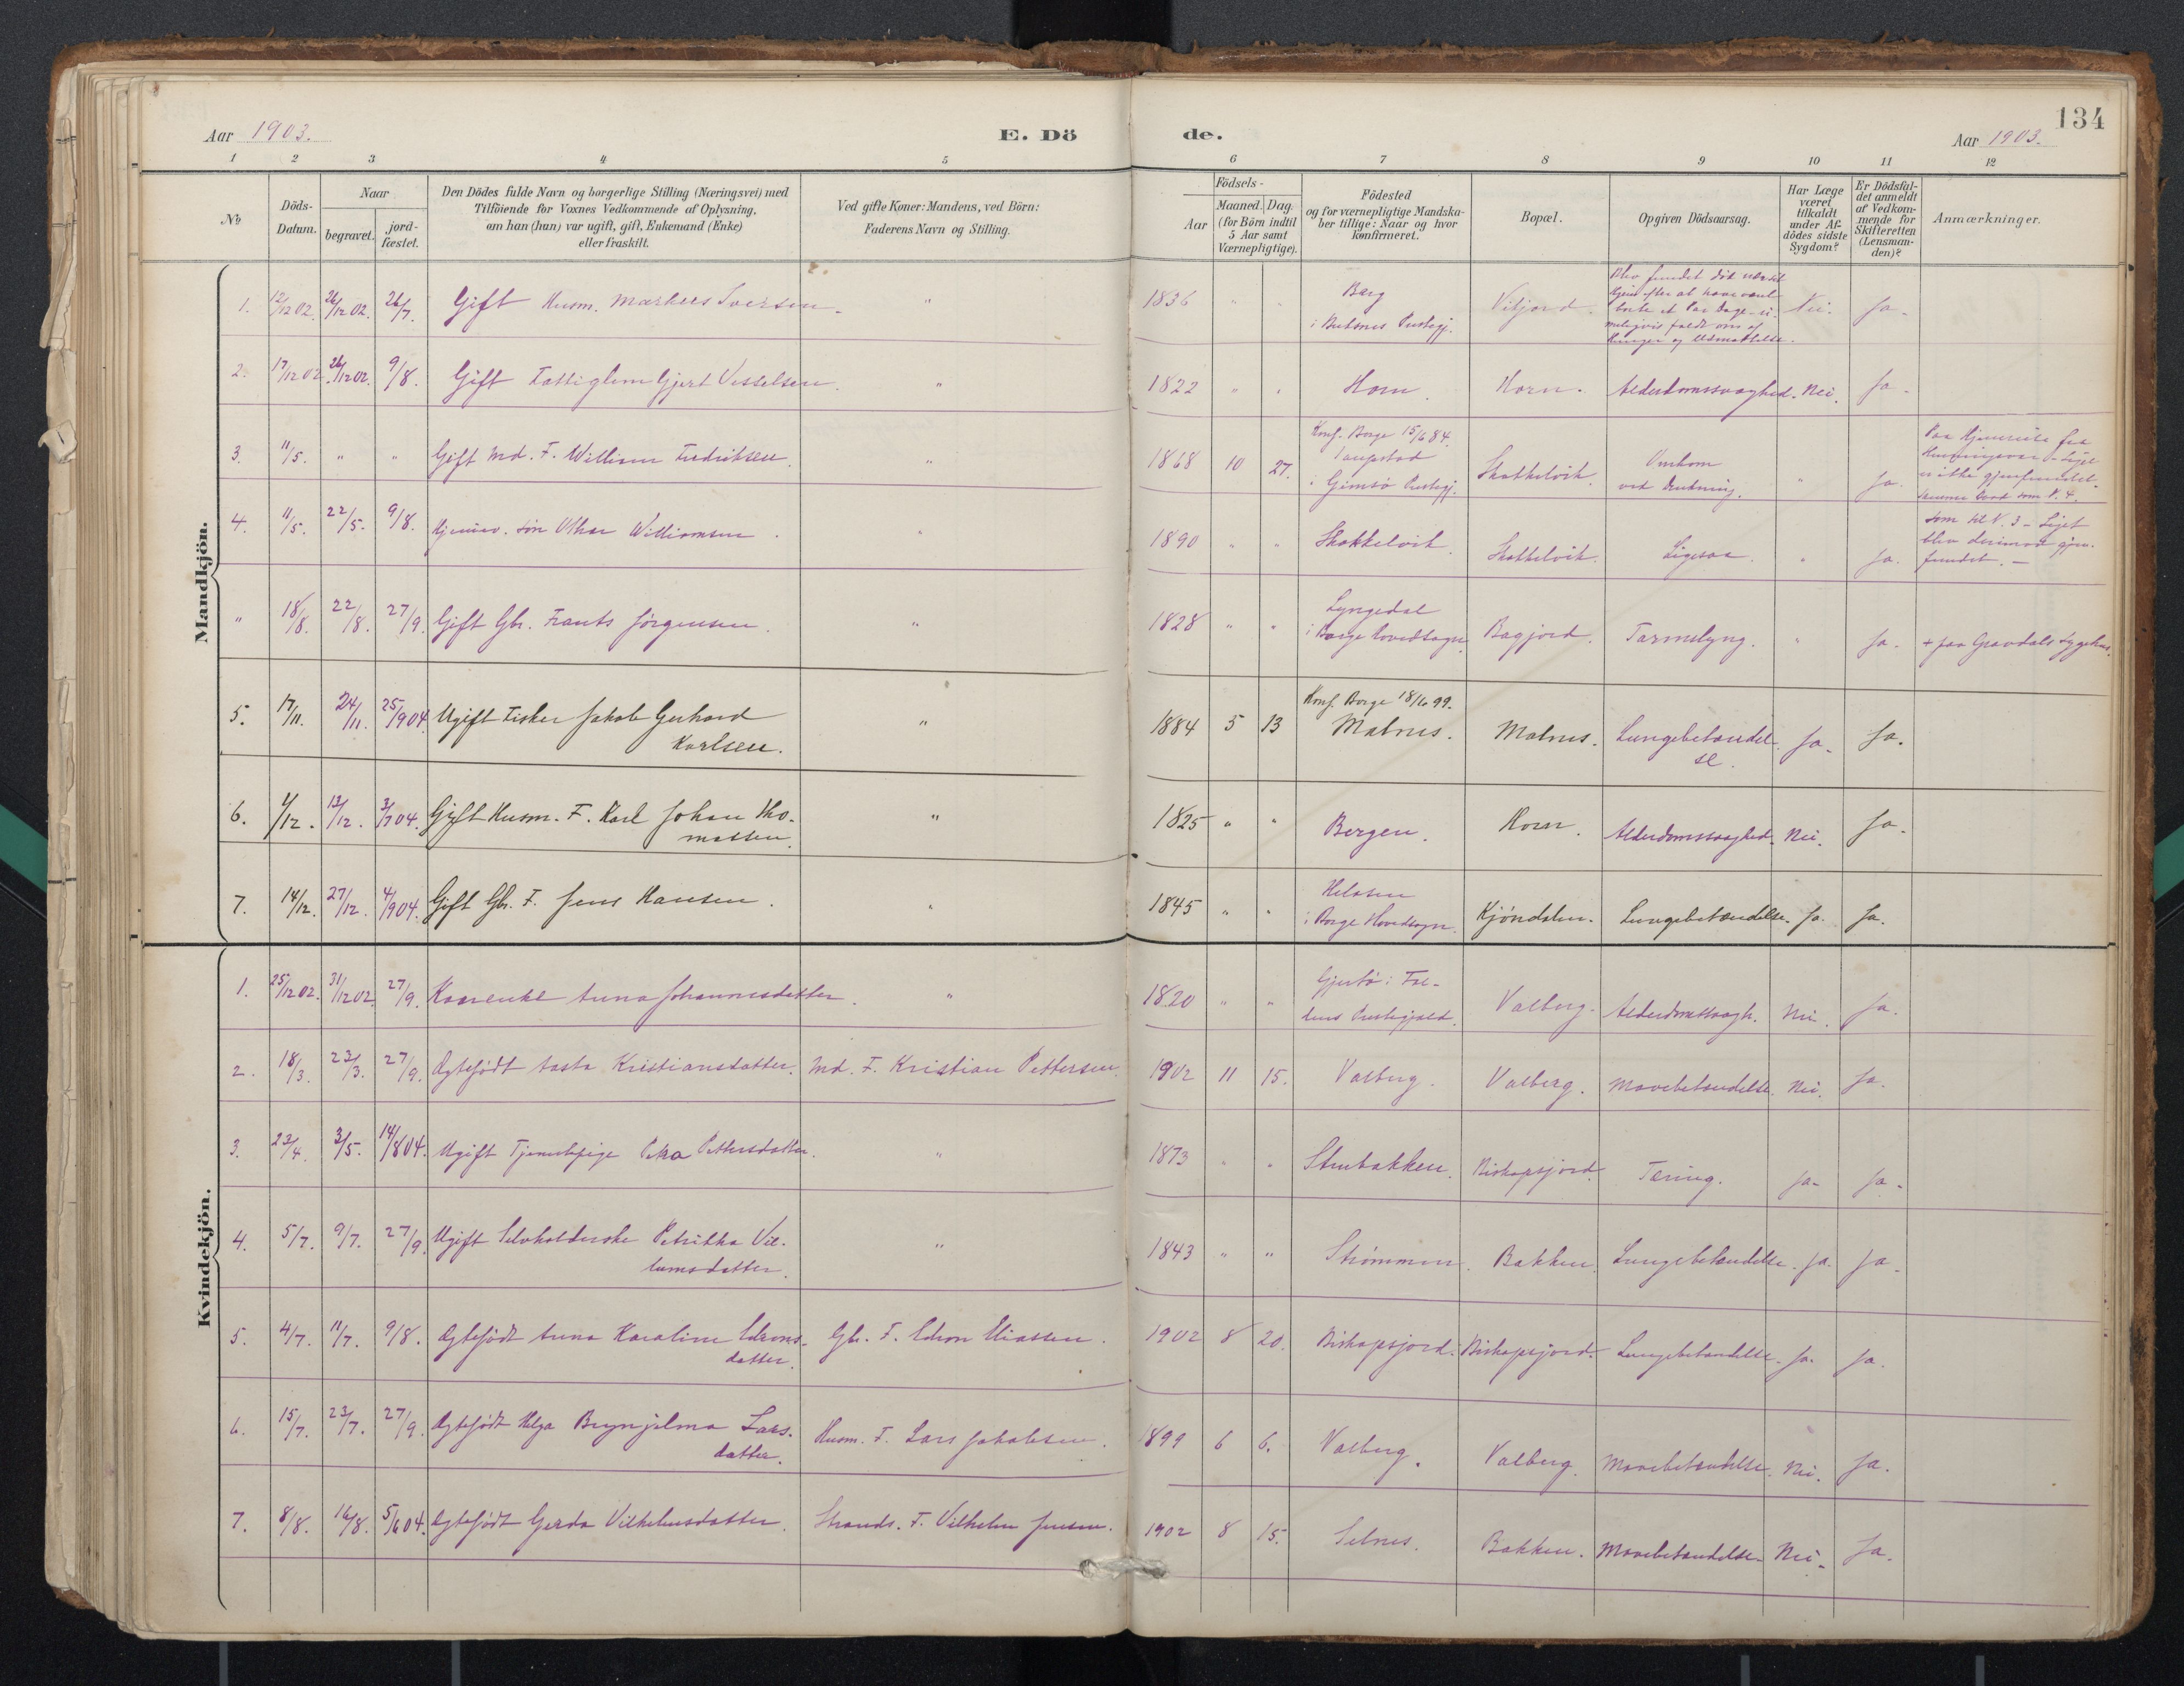 134
Aar 1903.
E. Dö
de.
Aar 1903.
1 2 3 4 5 6 7 8 9 10 11 12
No
Döds-
Datum.
Naar
begravet.
jord-
fæstet.
Den Dödes fulde Navn og borgerlige Stilling (Næringsvei) med
Tilföiende for Voxnes Vedkommende af Oplysning,
om han (hun) var ugift, gift, Enkemand (Enke)
eller fraskilt.
Ved gifte Koner: Mandens, ved Börn:
Faderens Navn og Stilling.
Födsels-
Aar
Maaned. Dag.
(for Börn indtil
5 Aar samt
Værnepligtige).
Födested
og for værnepligtige Mandska-
ber tillige: Naar og hvor
konfirmeret.
Bopæl.
Opgiven Dödsaarsag.
Har Læge
været
tilkaldt
under Af-
dödes sidste
Sygdom?
Er Dödsfal-
det anmeldt
af Vedkom-
mende for
Skifteretten
(Lensman-
den)?
Anmærkninger.
Mandkjön.
1. 12/12 02. 26/12 02. 26/7. Gift Husm. Markus Iversen. " 1836 " " Berg
i Buksnes Prestegj. Vitjord. Blev fundet død nærved
Hjem efter at have været
borte et Par Dage
af
Hunger og Udmattelse. Nei. Ja.
2. 17/12 02. 26/12 02. 9/8. Gift Fattiglem Gjert Vesselsen. " 1822 " " Horn. Horn. Alderdomssvaghed. Nei. Ja.
3. 11/5. " " Gift Md. F. William Fredriksen. " 1868 10 27. Konf. Borge 15/6 84.
Laupstad
i Gimsø Prestegj. Skottelvik. Omkom
ved Drukning. " Ja. Paa Hjemreise fra
Henningsvær - Liget
er ikke gjenfundet.
Samme Baad som N. 4.
4. 11/5. 22/5. 9/8. Hjemmev. Søn Othar Williamsen. " 1890 " " Skottelvik. Skottelvik. Ligesaa. " Ja. Som til N. 3 - Liget
blev derimod gjen-
fundet. -
" 18/8. 22/8. 27/9. Gift Gbr. Frants Jørgensen. " 1828 " " Lyngedal
i Borge Hovedsogn. Bagjord. Tarmslyng. " Ja. + paa Gravdals Sygehus.
5. 17/11. 24/11. 25/9 04. Ugift Fisker Jakob Gerhard
Karlsen. " 1884 5 13 Konf. Borge 18/6 99.
Malnes. Malnes. Lungebetændel-
se. Ja. Ja.
6. 4/12. 13/12. 3/7 04. Gift Husm. F. Karl Johan Tho-
massen. " 1825 " " Bergen. Horn. Alderdomssvaghed. Nei. Ja.
7. 14/12. 27/12. 4/9 04. Gift Gbr. F. Jens Hansen. " 1845 " "
i Borge Hovedsogn. Kjøndalen. Lungebetændelse. Ja. Ja.
Kvindekjön.
1. 25/12 02. 31/12 02. 27/9. Kaarenke Anna Johannesdatter. " 1820 " " Gjertø i Fol-
dens Prestegjeld. Valberg. Alderdomssvagh. Nei. Ja.
2. 18/3. 23/3. 27/9. Ægtefødt Aasta Kristiansdatter. Md. F. Kristian Pettersen. 1902 11 15. Valberg. Valberg. Mavebetændelse. Nei. Ja.
3. 23/4. 3/5. 14/8 04. Ugift Tjenestepige Petra Pettersdatter. " 1873 " " Stenbakken. Biskopsjord. Tæring. Ja. Ja.
4. 5/7. 9/7. 27/9. Ugift Selvholderske Petrikka Vil-
lumsdatter. " 1843 " " Strømmen. Bakken. Lungebetændelse. Ja. Ja.
5. 4/7. 11/7. 9/8. Ægtefødt Anna Karoline Edvons-
datter. Gbr. F. Edvon Eliassen. 1902 8 20. Biskopsjord. Biskopsjord. Lungebetændelse. Ja. Ja.
6. 15/7. 23/7. 27/9. Ægtefødt Helga Brynjelma Lars-
datter. Husm. F. Lars Jakobsen. 1899 6 6. Valberg. Valberg. Mavebetændelse. Nei. Ja.
7. 8/8. 16/8. 5/6 04. Ægtefødt Gerda Vilhelmsdatter. Strands. F. Vilhelm Jensen. 1902 8 15. Selnes. Bakken. Mavebetændelse. Nei. Ja.